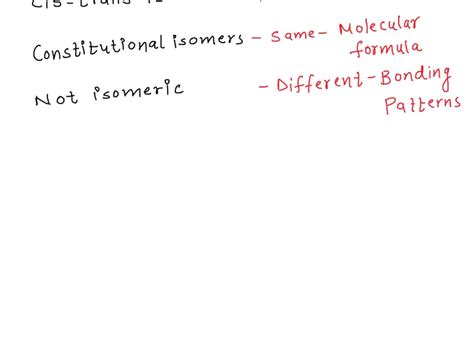 Constitutional isomers - Same - Molecular
formula
Not isomeric - Different - Bonding
Patterns